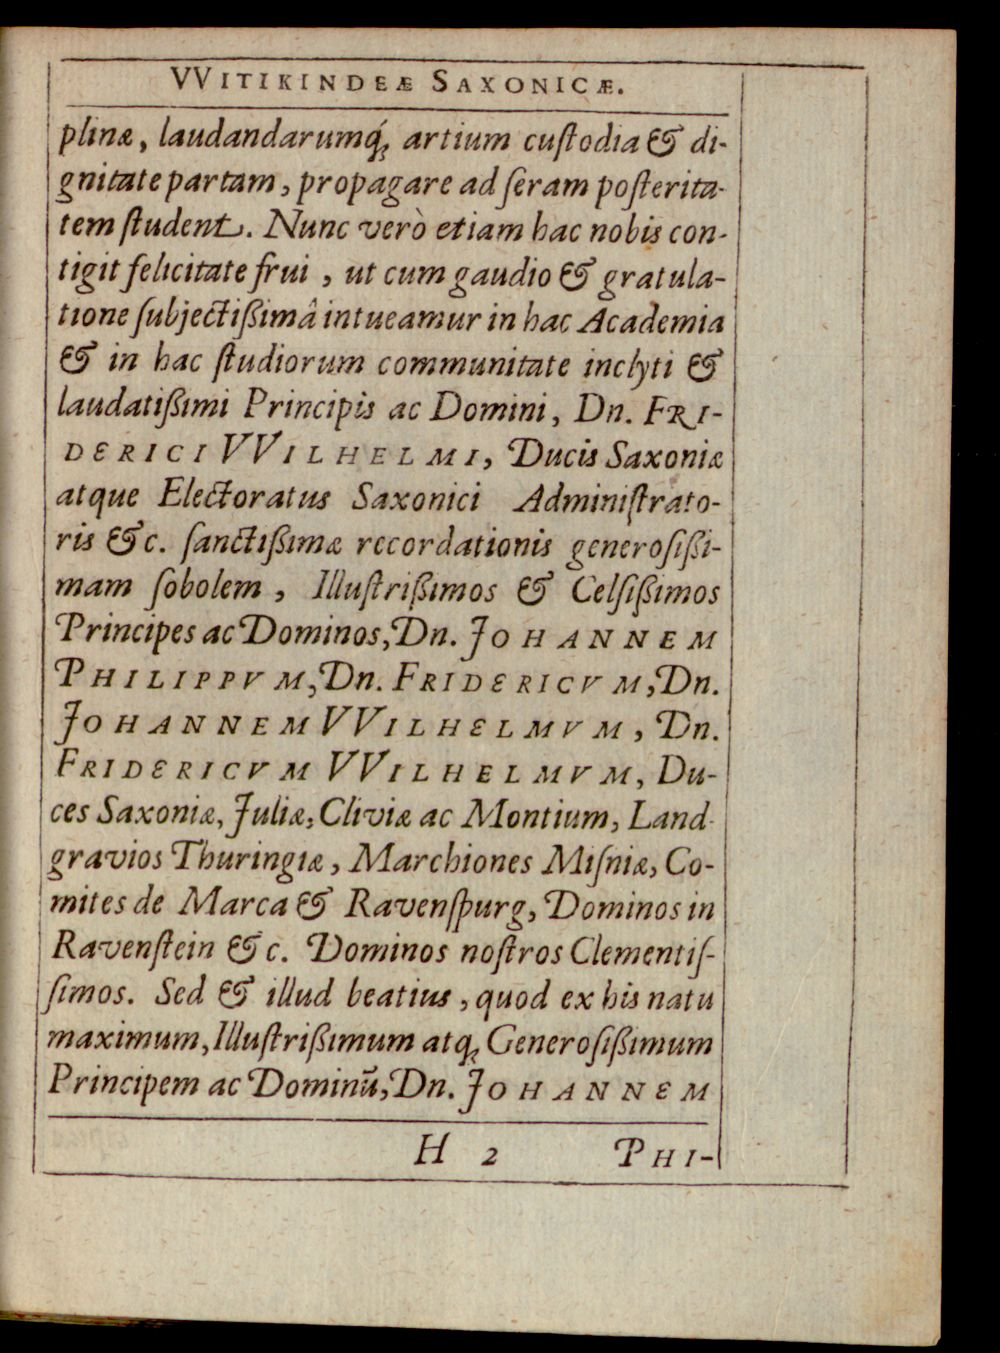 VVITIKINDEÆ SAXONICÆ.
plinæ, laudandarumq́; artium cuſtodia & di-
gnitate partam, propagare ad ſeram poſterita-
tem ſtudent. Nunc verò etiam hac nobis con-
tigit felicitate frui, ut cum gaudio & gratula-
tione ſubjectißimâ intueamur in hac Academia
& in hac ſtudiorum communitate inclyti &
laudatißimi Principis ac Domini, Dn. FRI-
DERICI VVILHELMI, Ducis Saxoniæ
atque Electoratus Saxonici Adminiſtrato-
ris &c. ſanctißimæ recordationis generoſißi-
mam ſobolem, Illuſtrißimos & Celſißimos
Principes ac Dominos, Dn. JOHANNEM
PHILIPPVM, Dn. FRIDERICVM, Dn.
JOHANNEM VVILHELMVM, Dn.
FRIDERICVM VVILHELMVM, Du-
ces Saxoniæ, Juliæ, Cliviæ ac Montium, Land-
gravios Thuringiæ, Marchiones Miſniæ, Co-
mites de Marca & Ravenſpurg, Dominos in
Ravenſtein &c. Dominos noſtros Clementiſ-
ſimos. Sed & illud beatius, quod ex his natu
maximum, Illuſtrißimum atq; Generoſißimum
Principem ac Dominũ, Dn. JOHANNEM
H 2 PHI-